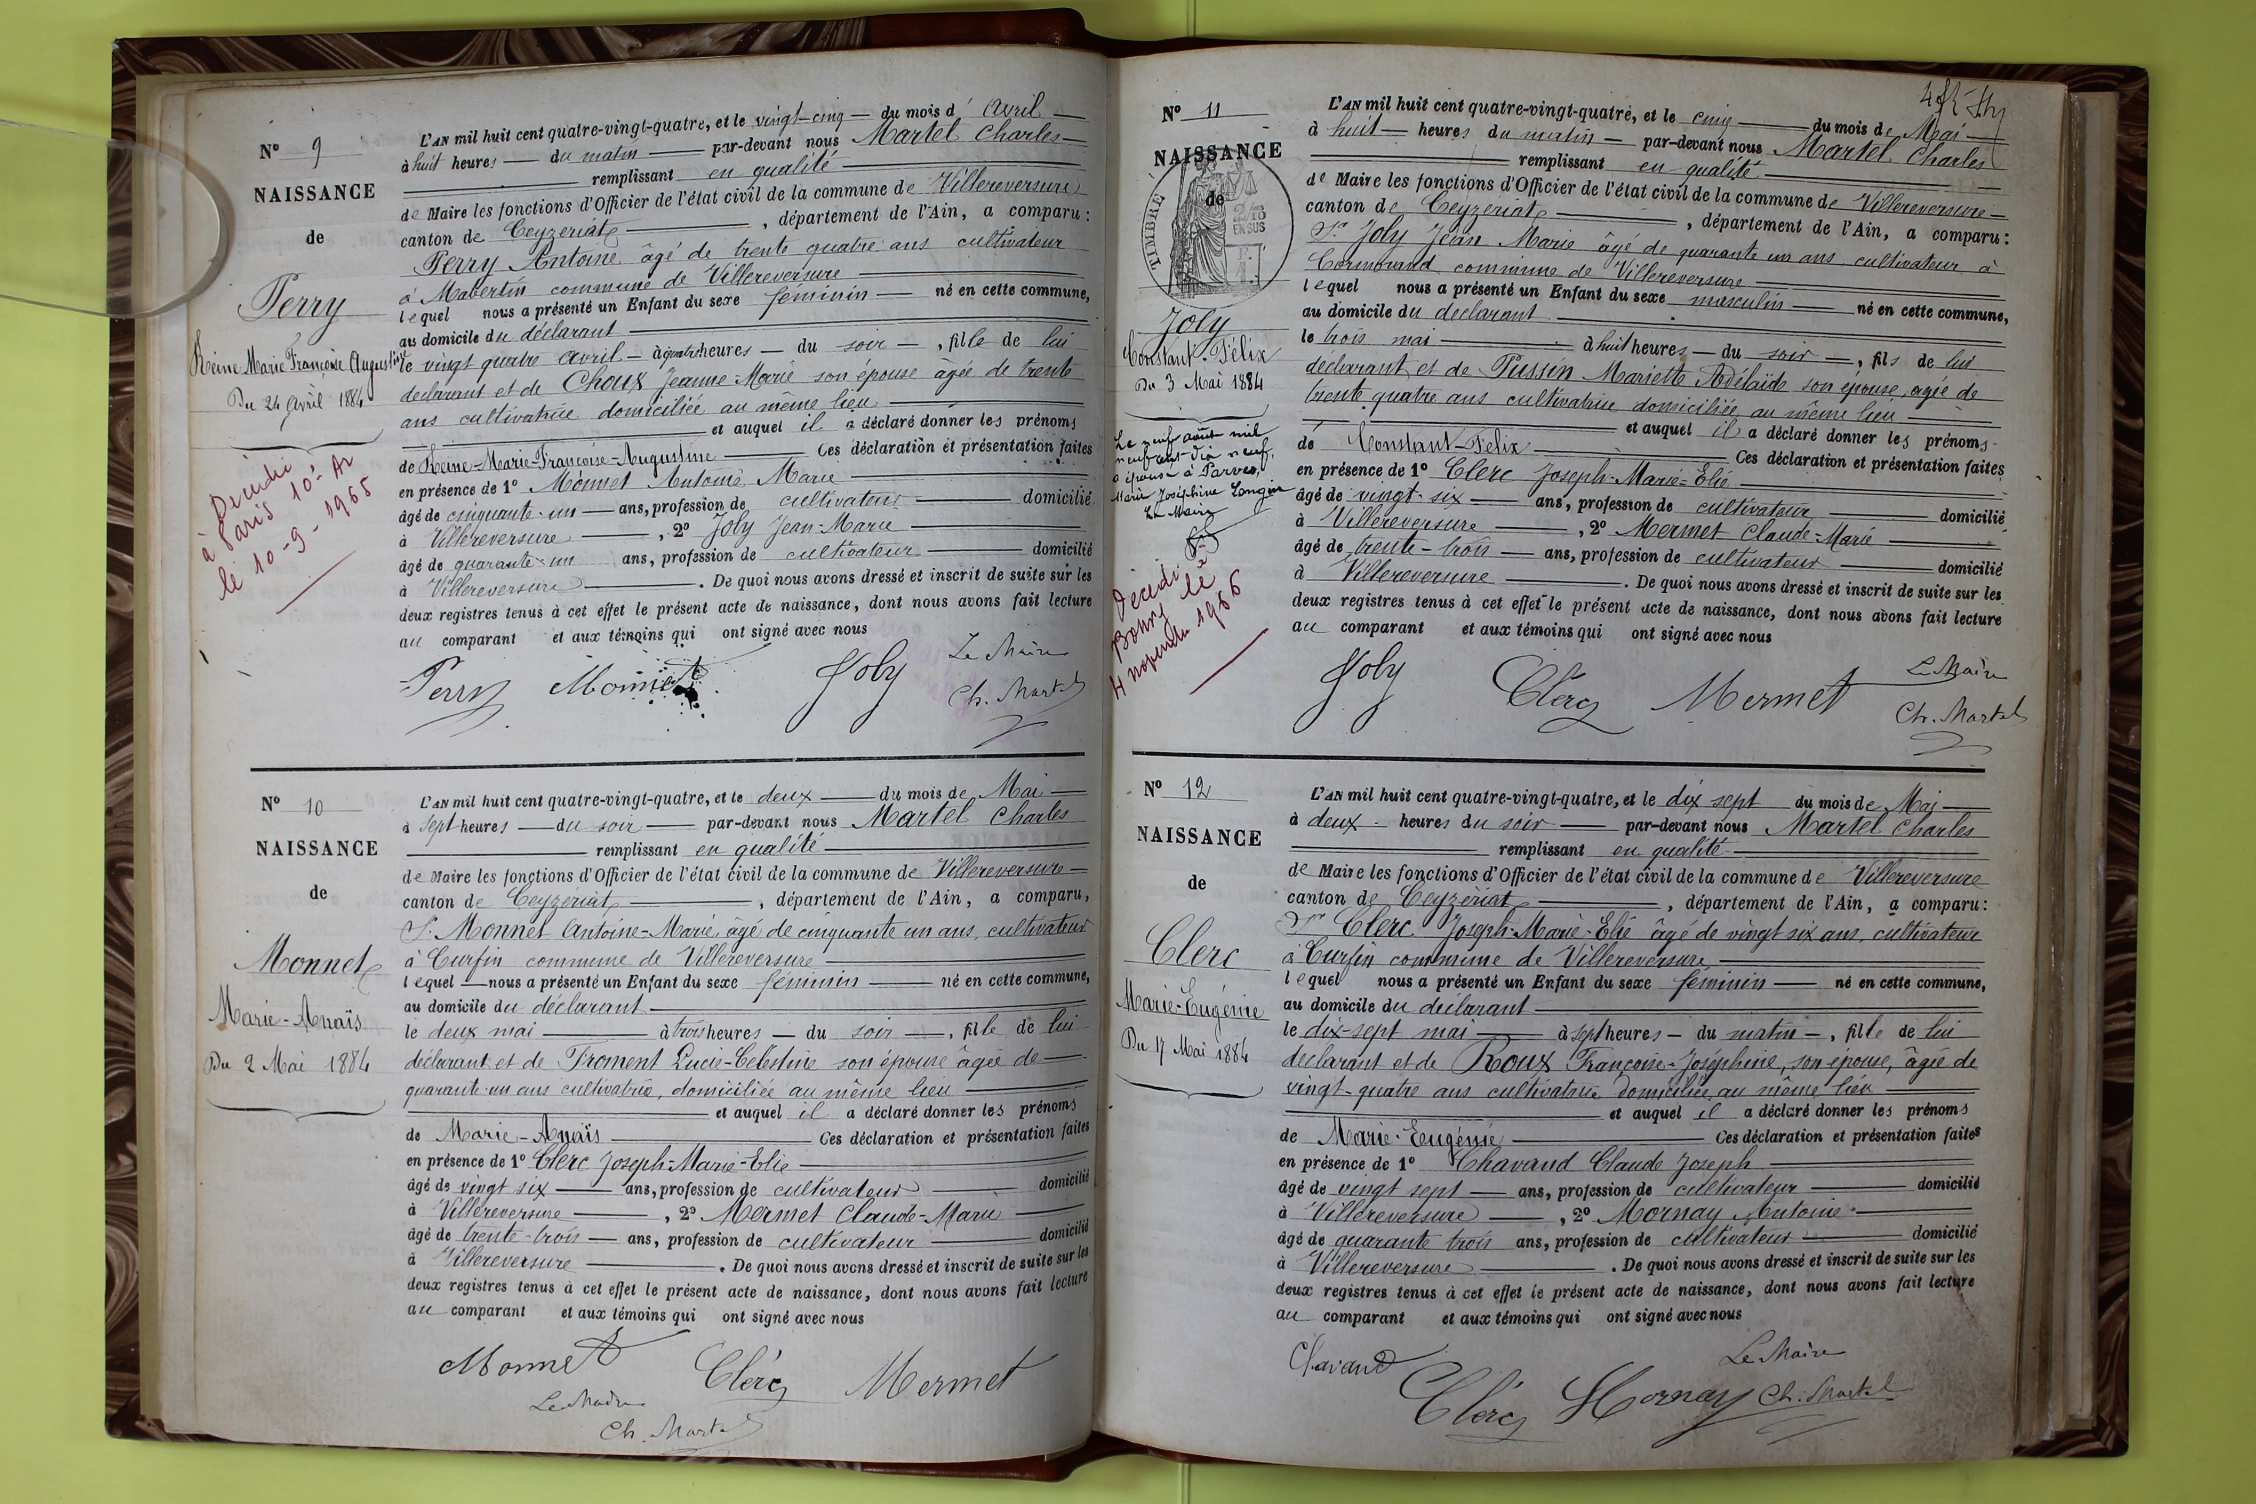 N° 9
NAISSANCE
de
Perry
Reine Marie Françoise Augustine
Du 24 Avril 1884
Décédée
à Paris 10e Ar
le 10-9-1965
L'AN mil huit cent quatre-vingt-quatre, et le vingt-cinq du mois d' avril
à huit heures du matin par-devant nous Martel Charles
remplissant en qualité
de Maire les fonctions d'Officier de l'état civil de la commune de Villereversure
canton de Ceyzériat, département de l'Ain, a comparu:
Perry Antoine âgé de trente quatre ans cultivateur
à Mabertin commune de Villereversure
lequel nous a présenté un Enfant du sexe féminin né en cette commune,
au domicile du déclarant
le vingt quatre avril à quatre heures du soir, fille de lui
déclarant et de Choux Jeanne-Marie son épouse âgée de trente
ans cultivatrice domiciliée au même lieu
et auquel il a déclaré donner les prénoms
de Reine-Marie-Françoise-Augustine Ces déclaration et présentation faites
en présence de 1° Monnet Antoine Marie
âgé de cinquante-un ans, profession de cultivateur domicilié
à Villereversure, 2° Joly Jean-Marie
âgé de quarante-un ans, profession de cultivateur domicilié
à Villereversure. De quoi nous avons dressé et inscrit de suite sur les
deux registres tenus à cet effet le présent acte de naissance, dont nous avons fait lecture
au comparant et aux témoins qui ont signé avec nous
Le Maire
Perry Monnet Joly
Ch. Martel
N° 10
NAISSANCE
de
Monnet
Marie-Anaïs
Du 2 Mai 1884
L'AN mil huit cent quatre-vingt-quatre, et le deux du mois de Mai
à sept heures du soir par-devant nous Martel Charles
remplissant en qualité
de Maire les fonctions d'Officier de l'état civil de la commune de Villereversure
canton de Ceyzériat, département de l'Ain, a comparu,
Sr Monnet Antoine-Marie, âgé de cinquante un ans, cultivateur
à Curfin commune de Villereversure
lequel nous a présenté un Enfant du sexe féminin né en cette commune,
au domicile du déclarant
le deux mai à trois heures du soir, fille de lui
déclarant et de Froment Lucie-Célestine son épouse âgée de
quarante-un ans cultivatrice, domiciliée au même lieu
et auquel il a déclaré donner les prénoms
de Marie-Anaïs Ces déclaration et présentation faites
en présence de 1° Clerc Joseph-Marie-Elie
âgé de vingt six ans, profession de cultivateur domicilié
à Villereversure, 2° Mermet Claude-Marie
âgé de trente-trois ans, profession de cultivateur domicilié
à Villereversure. De quoi nous avons dressé et inscrit de suite sur les
deux registres tenus à cet effet le présent acte de naissance, dont nous avons fait lecture
au comparant et aux témoins qui ont signé avec nous
Monnet Clerc Mermet
Le Maire
Ch. Martel
N° 11
NAISSANCE
de
TIMBRE
EN SUS
Joly
Constant-Félix
Du 3 Mai 1884
Le neuf août mil
neuf cent dix neuf,
a épousé à Parves,
Marie Joséphine Longin
Le Maire
Décédé
Bourg le
4 novembre 1966
L'AN mil huit cent quatre-vingt-quatre, et le cinq du mois de Mai
à huit heures du matin par-devant nous Martel Charles
remplissant en qualité
de Maire les fonctions d'Officier de l'état civil de la commune de Villereversure
canton de Ceyzériat, département de l'Ain, a comparu:
Sr Joly Jean Marie âgé de quarante un ans cultivateur à
Cormorand commune de Villereversure
lequel nous a présenté un Enfant du sexe masculin né en cette commune,
au domicile du déclarant
le trois mai à huit heures du soir, fils de lui
déclarant et de Pussin Mariette Adélaïde son épouse, âgée de
trente quatre ans cultivatrice domiciliée au même lieu
et auquel il a déclaré donner les prénoms
de Constant-Félix Ces déclaration et présentation faites
en présence de 1° Clerc Joseph-Marie-Elie
âgé de vingt-six ans, profession de cultivateur domicilié
à Villereversure, 2° Mermet Claude-Marie
âgé de trente-trois ans, profession de cultivateur domicilié
à Villereversure. De quoi nous avons dressé et inscrit de suite sur les
deux registres tenus à cet effet le présent acte de naissance, dont nous avons fait lecture
au comparant et aux témoins qui ont signé avec nous
Joly Clerc Mermet Le Maire
Ch. Martel
N° 12
NAISSANCE
de
Clerc
Marie-Eugénie
Du 17 Mai 1884
L'AN mil huit cent quatre-vingt-quatre, et le dix sept du mois de Mai
à deux heures du soir par-devant nous Martel Charles
remplissant en qualité
de Maire les fonctions d'Officier de l'état civil de la commune de Villereversure
canton de Ceyzériat, département de l'Ain, a comparu:
Sr Clerc Joseph-Marie-Elie âgé de vingt six ans, cultivateur
à Curfin commune de Villereversure
lequel nous a présenté un Enfant du sexe féminin né en cette commune,
au domicile du déclarant
le dix-sept mai à sept heures du matin, fille de lui
déclarant et de Roux Françoise-Joséphine, son épouse, âgée de
vingt-quatre ans cultivatrice domiciliée au même lieu
et auquel il a déclaré donner les prénoms
de Marie-Eugénie Ces déclaration et présentation faites
en présence de 1° Chavand Claude Joseph
âgé de vingt sept ans, profession de cultivateur domicilié
à Villereversure, 2° Mornay Antoine
âgé de quarante trois ans, profession de cultivateur domicilié
à Villereversure. De quoi nous avons dressé et inscrit de suite sur les
deux registres tenus à cet effet le présent acte de naissance, dont nous avons fait lecture
au comparant et aux témoins qui ont signé avec nous
Chavand Le Maire
Clerc Mornay Ch. Martel